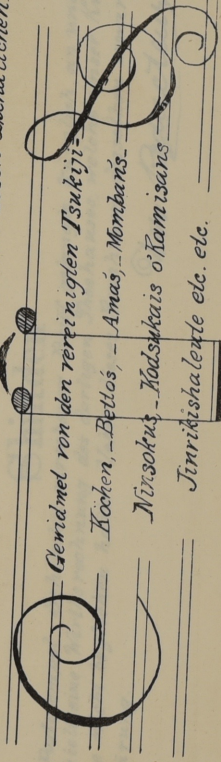 Gewidmet von den vereinigten Tsukiji=
Köchen, – Bettos, – Amas, – Mombans –
Ninsokus, – Kodsukais o'Kamisans
Jinrikishaleute etc. etc.